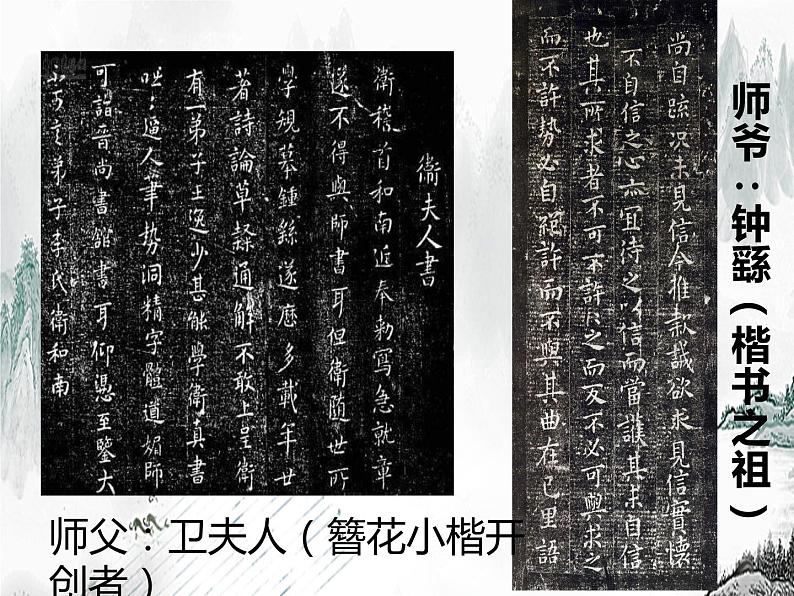 师爷：钟繇（楷书之祖）
尚自疏况未见信今推款诚欲求见信实怀
不自信之心亦宜待之以信而当护其未自信
也其所求者不可不许许之而反不必可与求之
而不许势必自绝许而不与其曲在己里语
衛夫人書
衛稽首和南近奉勅寫急就章
遂不得與師書耳但衛随世所
學規摹鍾繇遂歷多載年廿
著詩論草隸通解不敢上呈衛
有一弟子王逸少甚能學衛真書
咄咄逼人筆勢洞精字體遒媚師
可詣晉尚書館書耳仰憑至鑒大
不可言弟子李氏衛和南
师父：卫夫人（簪花小楷开
创者）